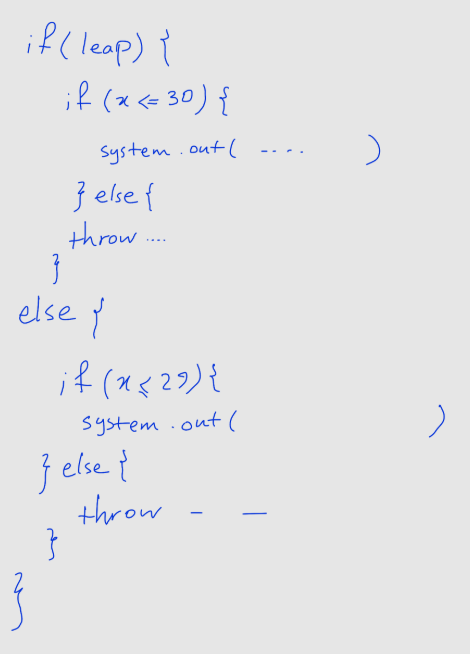 if (leap) {
if (x <= 30) {
system.out( .... )
} else {
throw ....
}
else {
if (x ≤ 29) {
system.out( )
} else {
throw - —
}
}